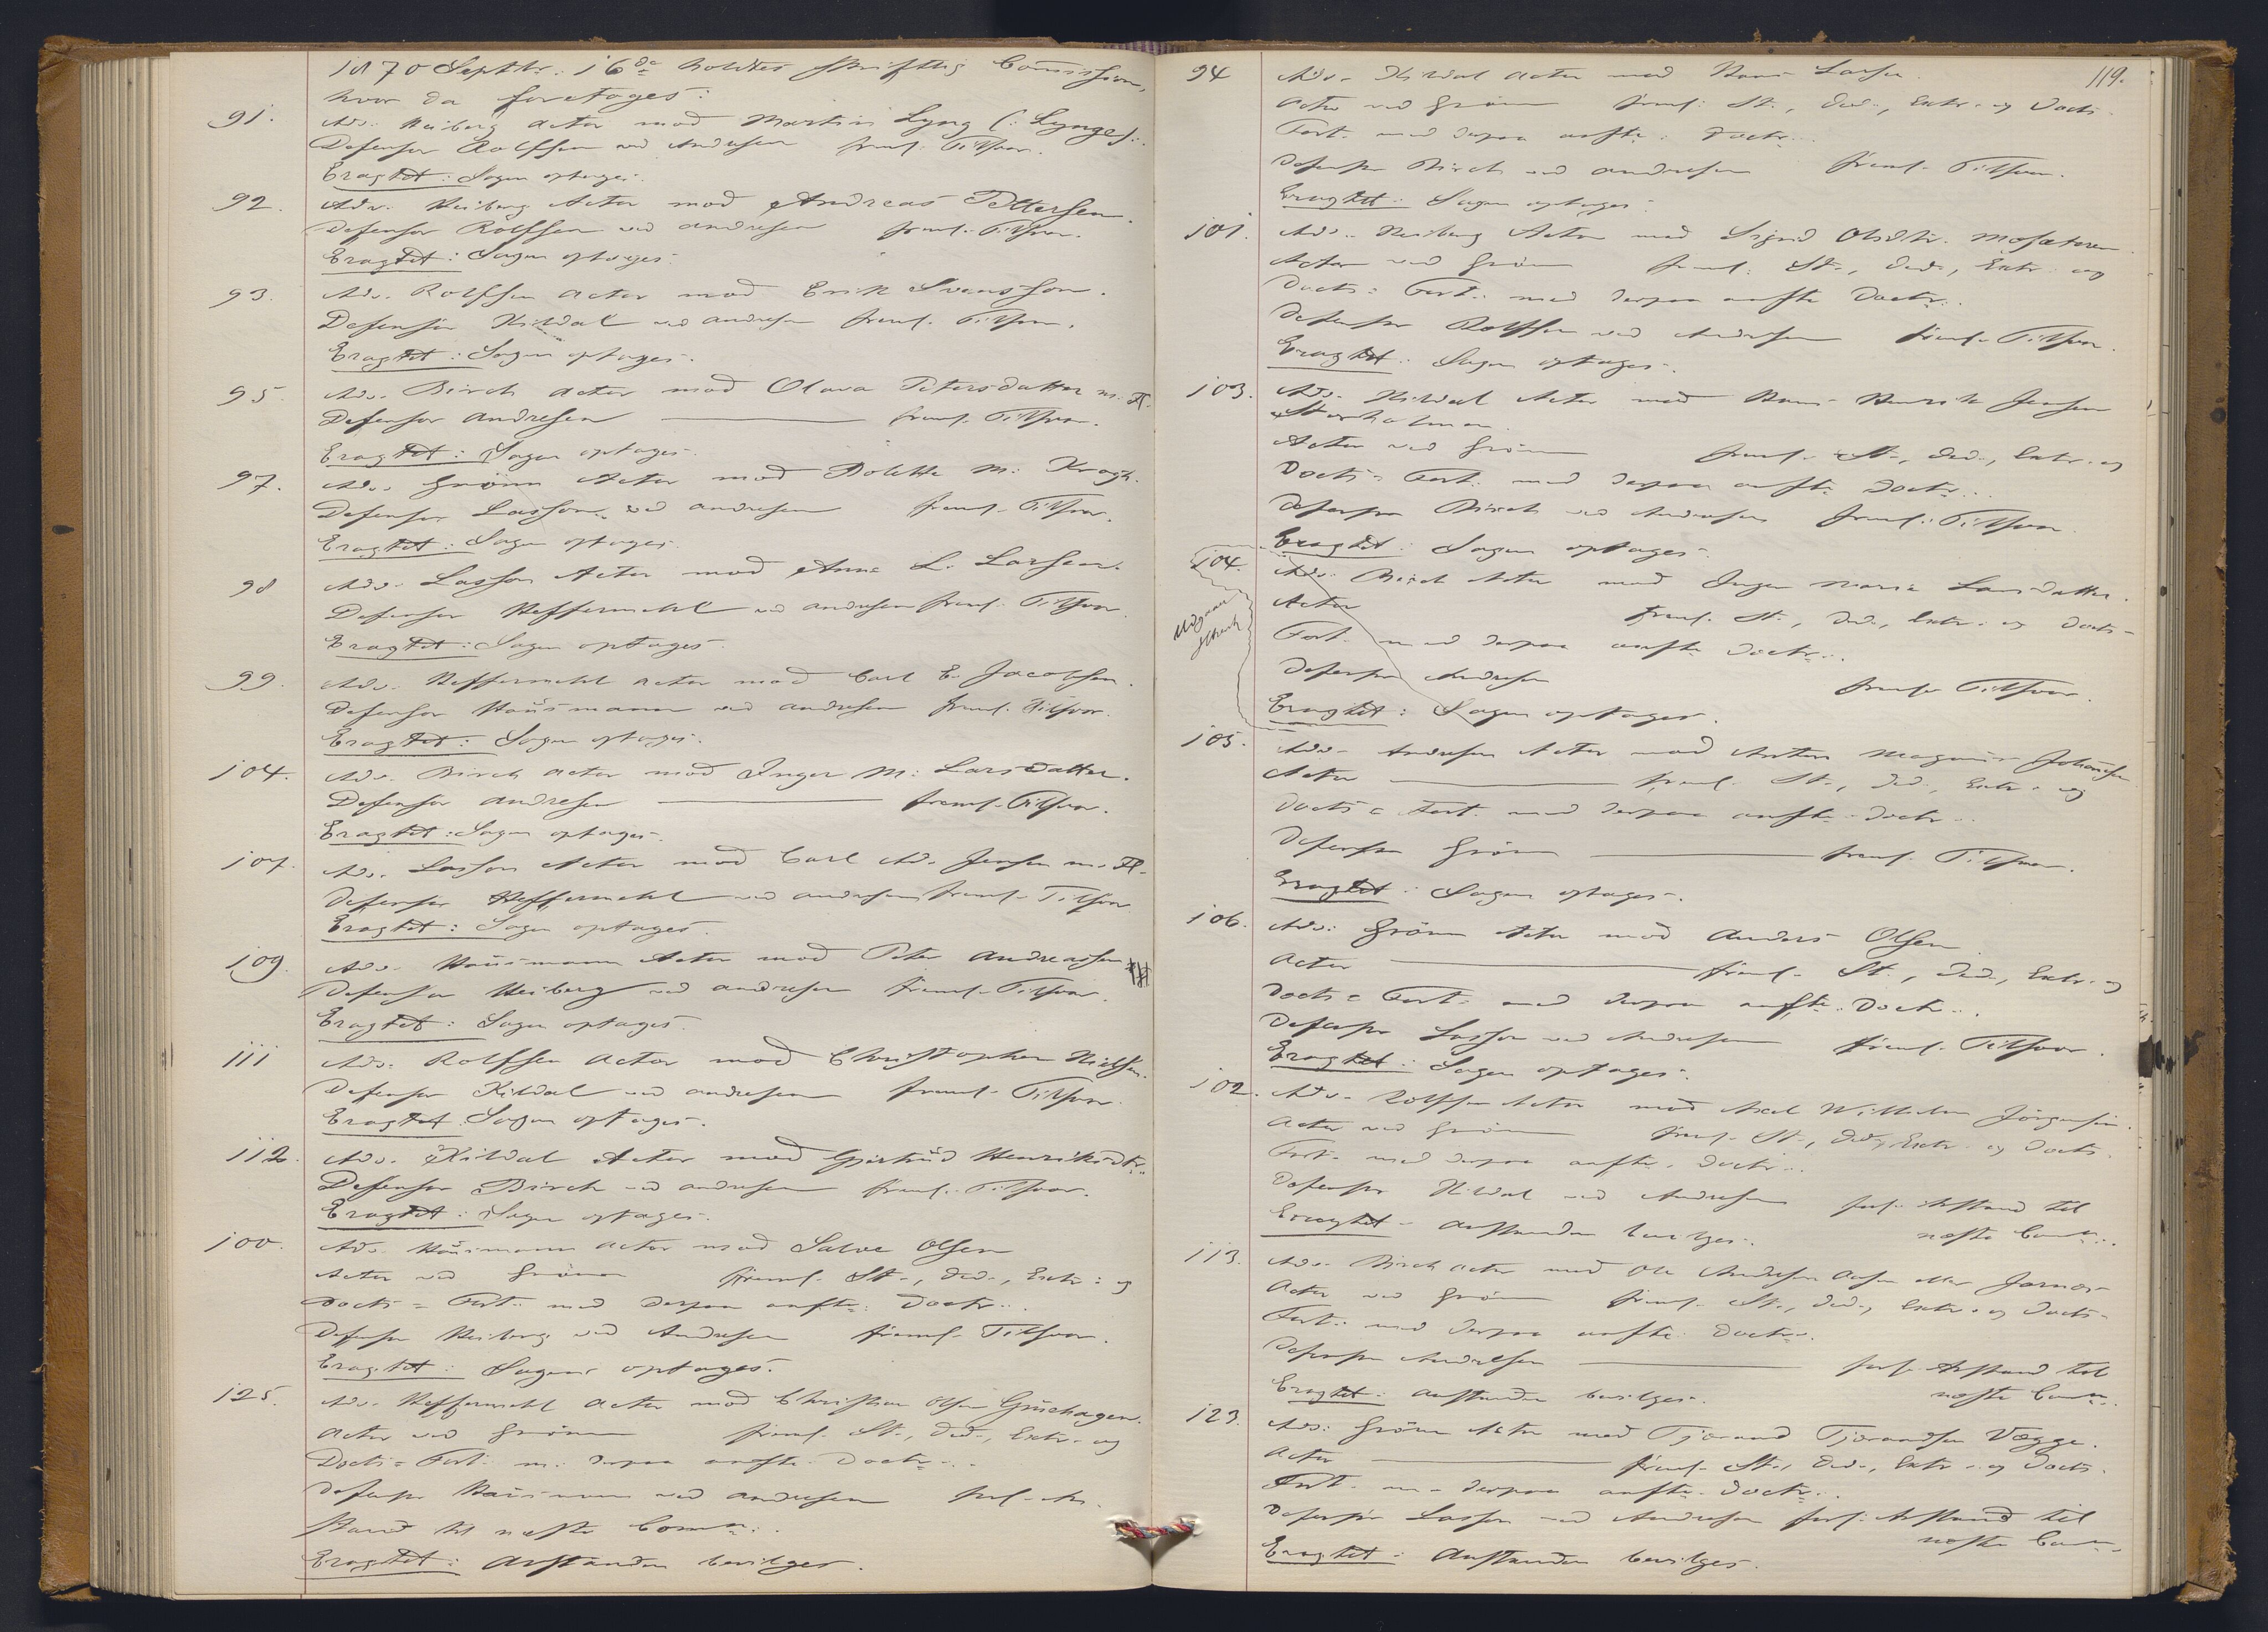 1870 Septbr. 16de holdtes skriftlig Commission,
hvor da foretages:
91. Adv. Heiberg Actor mod Martin Lyng (: Lynge):.
Defensor Rolffsen ved Andresen freml. Tilsvar.
Eragtet: Sagen optages.
92. Adv. Heiberg Actor mod Andreas Pettersen.
Defensor Rolffsen ved Andresen freml. Tilsvar.
Eragtet: Sagen optages.
93. Adv. Rolffsen Actor mod Erik Svensson.
Defensor Kildal ved Andresen freml. Tilsvar.
Eragtet: Sagen optages.
95. Adv. Birch Actor mod Olava Petersdatter m. Fl.
Defensor Andresen freml. Tilsvar.
Eragtet: Sagen optages.
97. Adv. Grönn Actor mod Bolette M. Krogh.
Defensor Lasson ved Andresen freml. Tilsvar.
Eragtet: Sagen optages.
98 Adv. Lasson Actor mod Anne L. Larsen.
Defensor Heffermehl ved Andresen freml. Tilsvar.
Eragtet: Sagen optages.
99. Adv. Heffermehl Actor mod Carl E. Jacobsen.
Defensor Hausmann ved Andresen freml. Tilsvar.
Eragtet: Sagen optages.
104. Adv. Birch Actor mod Inger M. Larsdatter.
Defensor Andresen freml. Tilsvar.
Eragtet: Sagen optages.
107. Adv. Lasson Actor mod Carl Ad. Jensen m. Fl.
Defensor Heffermehl ved Andresen freml. Tilsvar
Eragtet: Sagen optages.
109. Adv. Hausmann Actor mod Peter Andreassen
Defensor Heiberg ved Andresen freml. Tilsvar.
Eragtet: Sagen optages.
111 Adv. Rolffsen Actor mod Christopher Nielsen.
Defensor Kildal ved Andresen freml. Tilsvar.
Eragtet: Sagen optages.
112. Adv. Kildal Actor mod Gjertrud Henriksdtr.
Defensor Birch ved Andresen freml. Tilsvar.
Eragtet: Sagen optages.
100. Adv. Hausmann Actor mod Salve Olsen
Actor ved Grönn freml. St., Ded., Extr. og
Docts. Fort. med derpaa anfte. Doctr.
Defensor Heiberg ved Andresen freml. Tilsvar.
Eragtet: Sagen optages.
125. Adv. Heffermehl Actor mod Christian Olsen Gruehagen.
Actor ved Grönn freml. St., Ded., Extr. og
Docts. Fort. m. derpaa anfte. Doctr.
Defensor Hausmann ved Andresen forl. An-
stand til næste Comn.
Eragtet: Anstanden bevilges.
119.
94 Adv. Kildal Actor mod Hans Larsen.
Actor ved Grönn freml. St., Ded., Extr. og Docts.
Fort. med derpaa anfte. Doctr.
Defensor Birch ved Andresen freml. Tilsvar.
Eragtet: Sagen optages.
101. Adv. Heiberg Actor mod Sigrid Olsdtr. Mosateren
Actor ved Grönn freml. St., Ded., Extr. og
Docts. Fort. med derpaa anfte Doctr.
Defensor Rolffsen ved Andresen freml. Tilsvar.
Eragtet: Sagen optages.
103. Adv. Kildal Actor mod Hans Henrik Jensen
Storholmen.
Actor ved Grönn freml. St., Ded., Extr. og
Docts. Fort. med derpaa anfte. Doctr.
Defensor Birch ved Andresen freml. Tilsvar.
Eragtet: Sagen optages.
104. Adv. Birch Actor mod Inger Maria Larsdatter.
Actor freml. St., Ded., Extr. og Docts.
Fort. med derpaa anfte Doctr.
Defensor Andresen freml. Tilsvar.
Eragtet: Sagen optages.
105. Adv. Andresen Actor mod Anton Magnus Johansen
Actor freml. St., Ded., Extr. og
Docts. Fort. med derpaa anfte. Doctr.
Defensor Grönn freml. Tilsvar.
Eragtet: Sagen optages.
106. Adv. Grönn Actor mod Anders Olsen
Actor freml. St., Ded., Extr. og
Docts. Fort. med derpaa anfte. Doctr.
Defensor Lasson ved Andresen freml. Tilsvar.
Eragtet: Sagen optages.
102. Adv. Rolffsen Actor mod Axel Wilhelm Jörgensen.
Actor ved Grönn freml. St., Ded., Extr. og Docts.
Fort. med derpaa anfte. Doctr.
Defensor Kildal ved Andresen forl. Anstand til
næste Comn.
Eragtet: Anstanden bevilges.
113. Adv. Birch Actor mod Ole Andresen Aasen eller Jarnæs
Actor ved Grönn freml. St., Ded., Extr. og Docts.
Fort. med derpaa anfte. Doctr.
Defensor Andresen forl. Anstand til
næste Comn.
Eragtet: Anstanden bevilges.
123. Adv. Grönn Actor mod Tjerand Tjerandsen Vægge.
Actor freml. St., Ded., Extr. og Docts.
Fort. m. derpaa anfte. Doctr.
Defensor Lasson ved Andresen forl. Anstand til
næste Comn.
Eragtet: Anstanden bevilges.